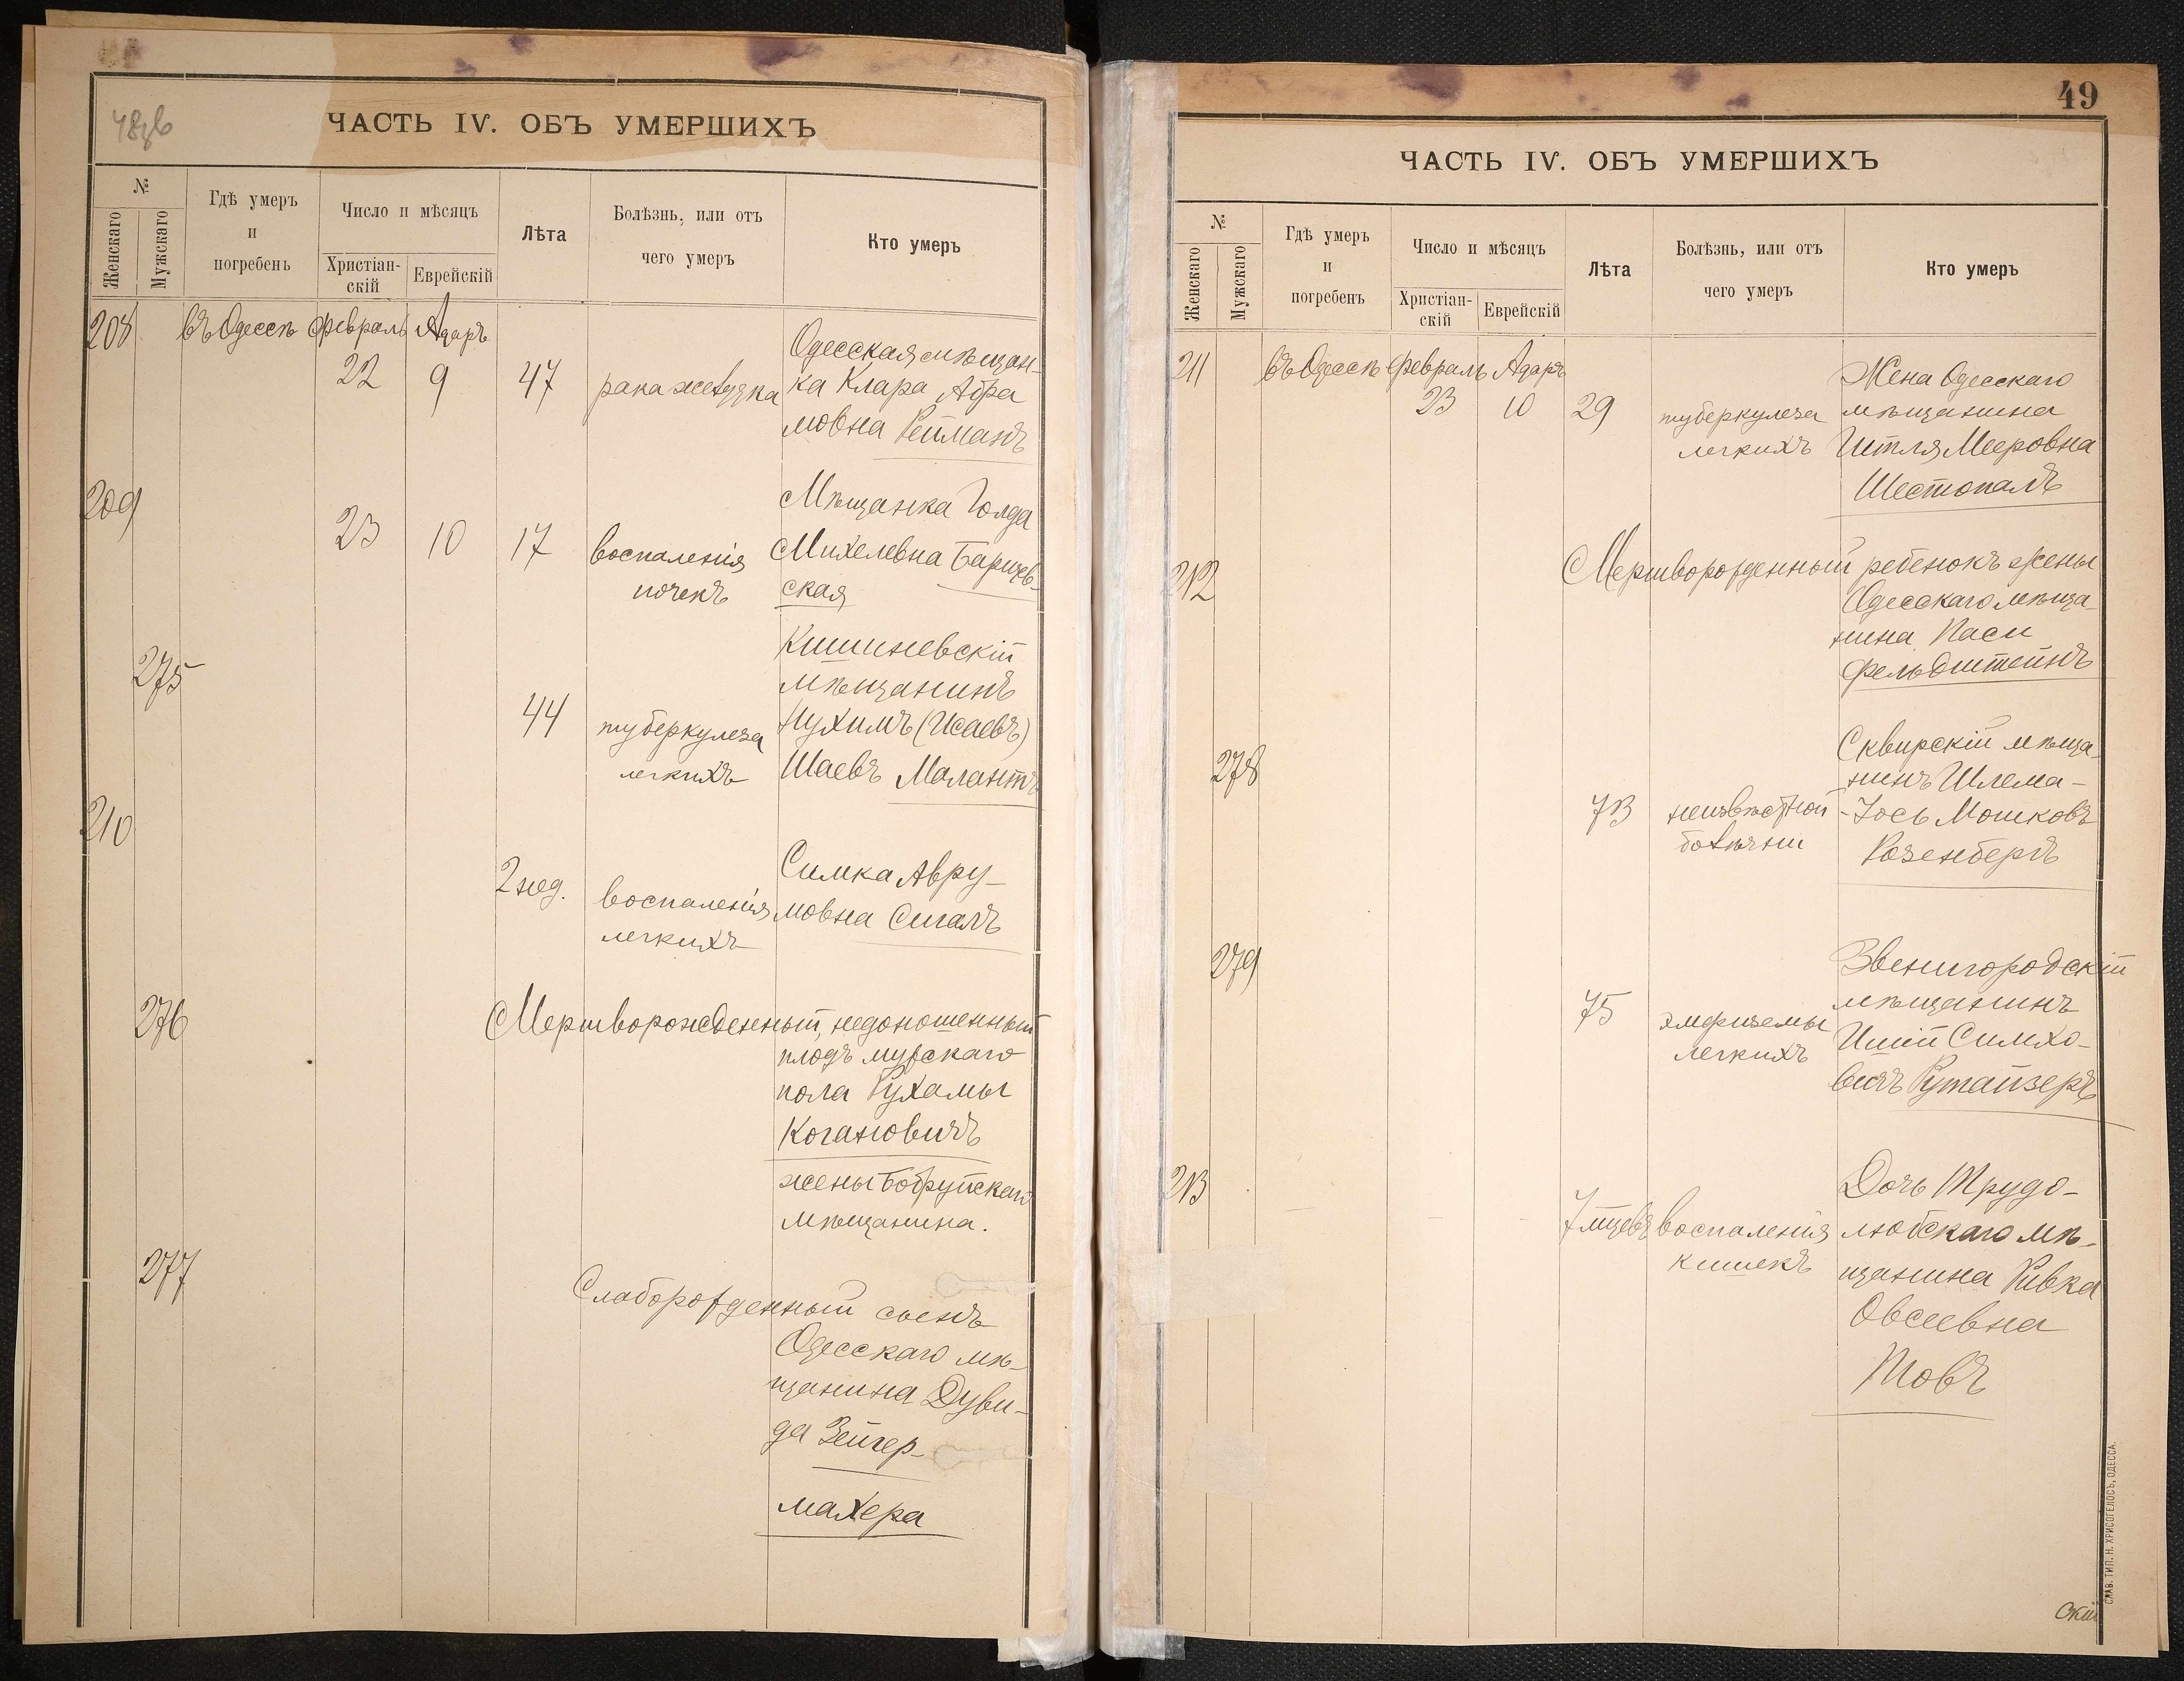 ЧАСТЬ IV. ОБЪ УМЕРШИХЪ
№
Женскаго
Мужскаго
Гдѣ умеръ
и
погребенъ
Число и мѣсяцъ
Христіан-
скій
Еврейскій
Лѣта
Болѣзнь, или отъ
чего умеръ
Кто умеръ
208 въ Одессѣ Февраль Адаръ
22 9 47 рака желудка
Одесская мѣщан-
ка Клара Абра
мовна Рейманъ
209
23 10 17 воспаленія
почекъ
Мѣщанка Голда
Михелевна Барщев-
ская
275
44 туберкулеза
легкихъ
Кишиневскій
мѣщанинъ
Нухимъ (Исаевъ)
Шаевъ Малантъ
210
2 нед. воспаленія
легкихъ
Симка Авру-
мовна Сигалъ
276
Мертворожденный, недоношенный
плодъ мужскаго
пола Рухамы
Когановичъ
жены Бобруйскаго
мѣщанина.
277
Слаборожденный сынъ
Одесскаго мѣ-
щанина Дуви-
да Зейгер-
махера
49
ЧАСТЬ IV. ОБЪ УМЕРШИХЪ
№
Женскаго
Мужскаго
Гдѣ умеръ
и
погребенъ
Число и мѣсяцъ
Христіан-
скій
Еврейскій
Лѣта
Болѣзнь, или отъ
чего умеръ
Кто умеръ
211 въ Одессѣ Февраль Адаръ
23 10 29 туберкулеза
легкихъ
Жена Одесскаго
мѣщанина
Итля Мееровна
Шестопалъ
212
Мертворожденный ребенокъ жены
Одесскаго мѣща-
нина Паси
Фельдштейнъ
278
73 неизвѣстной
болѣзни
Сквирскій мѣща-
нинъ Шлема-
-Іось Мошковъ
Розенбергъ
279
75 эмфиземы
легкихъ
Звенигородскій
мѣщанинъ
Ицій Симхо-
вичъ Рутайзеръ
213
7 мцевъ воспаленія
кишекъ
Дочь Трудо-
любскаго мѣ-
щанина Ривка
Овсеевна
Товъ
СЛАВ. ТИП. Н. ХРИСОГЕЛОСЪ, ОДЕССА.
скій